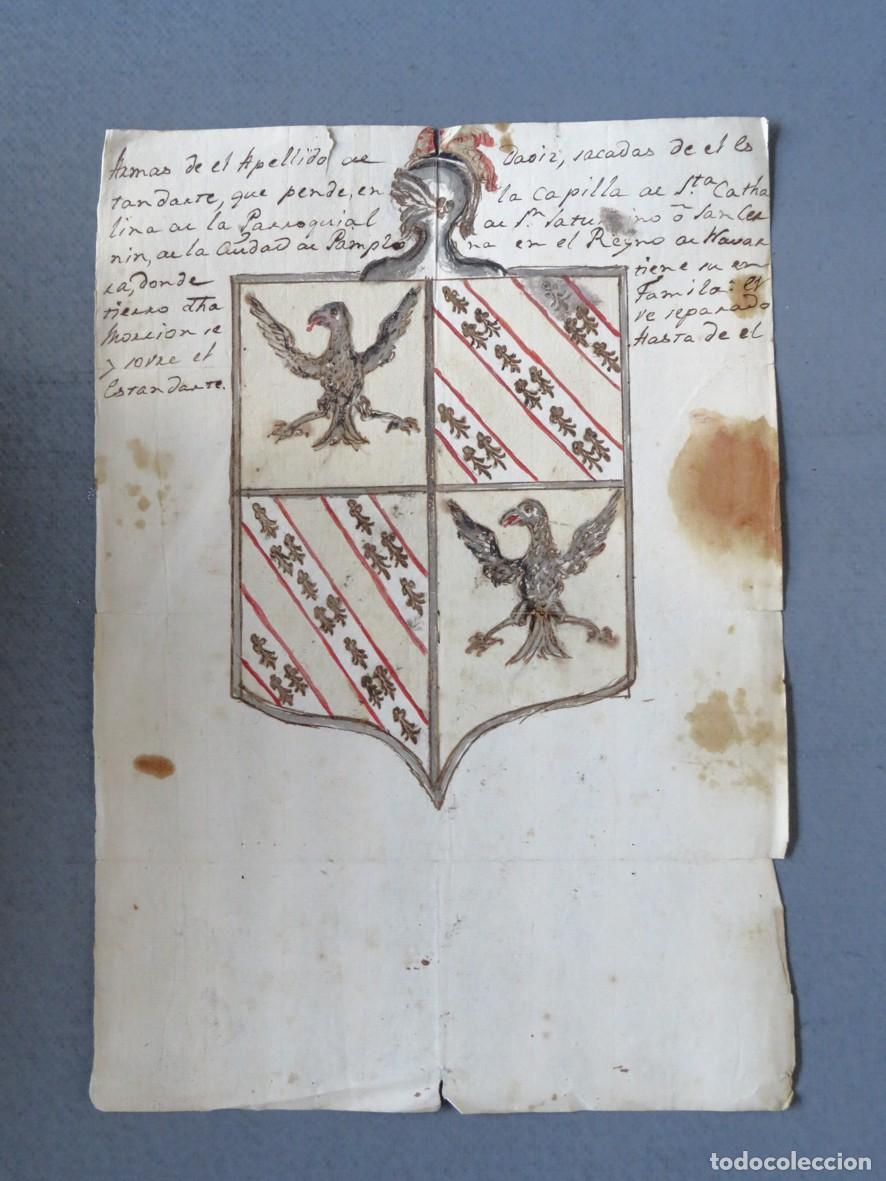 Armas de el Apellido de Daoiz, sacadas de el Es
tandarte, que pende, en la Capilla de S.ta Catha
lina de la Parroquial de S.n Saturnino ô San Cer
nin, de la Ciudad de Pamplona en el Reyno de Navar
ra, donde tiene su en
tierro dha Familia: el
Morrion se ve separado
y sovre el Hasta de el
Estandarte.
todocoleccion